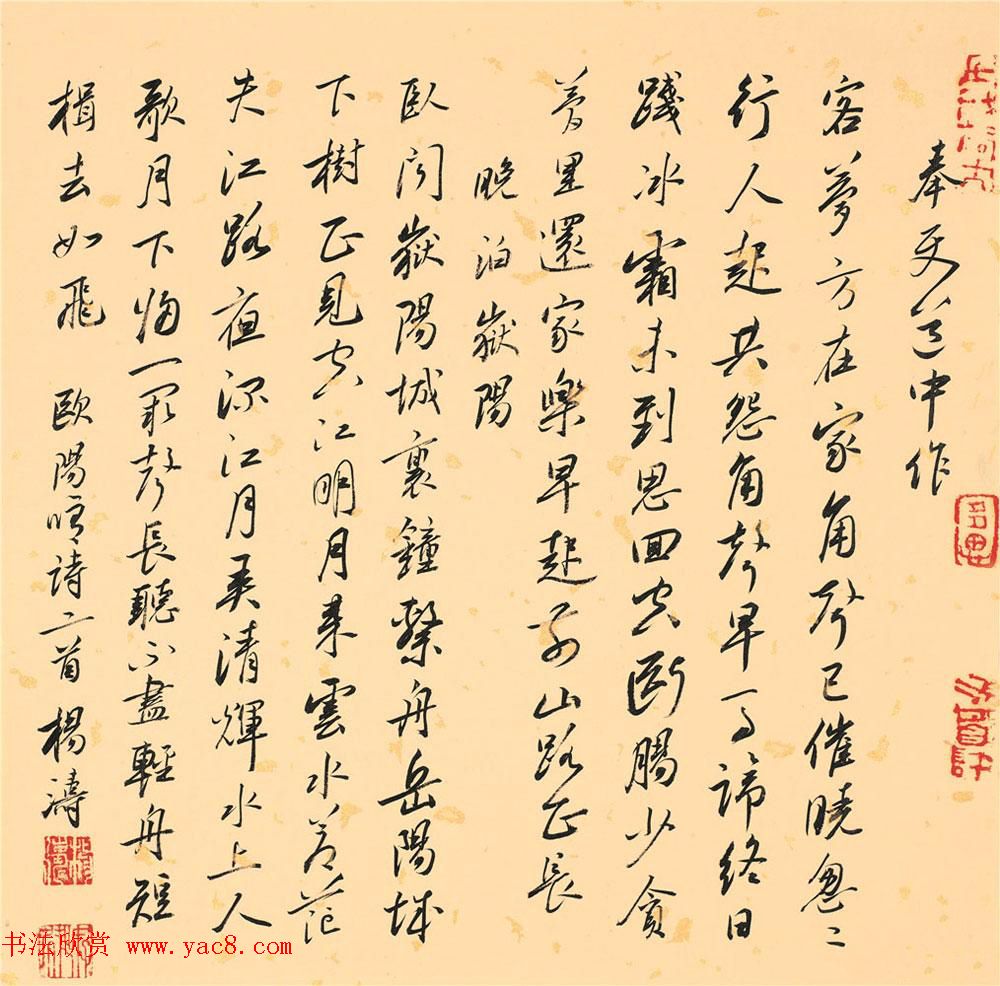 奉使道中作
客夢方在家角聲已催曉怱〻
行人起共怨角聲早馬蹄終日
踐冰霜未到思回空斷腸少貪
夢里還家樂早起前山路正長
晚泊嶽陽
臥聞嶽陽城裏鐘繫舟岳陽城
下樹正見空江明月來雲水蒼茫
失江路夜深江月弄清輝水上人
歌月下歸一闋聲長聽不盡輕舟短
楫去如飛 歐陽脩詩二首 楊濤
书法欣赏 www.yac8.com